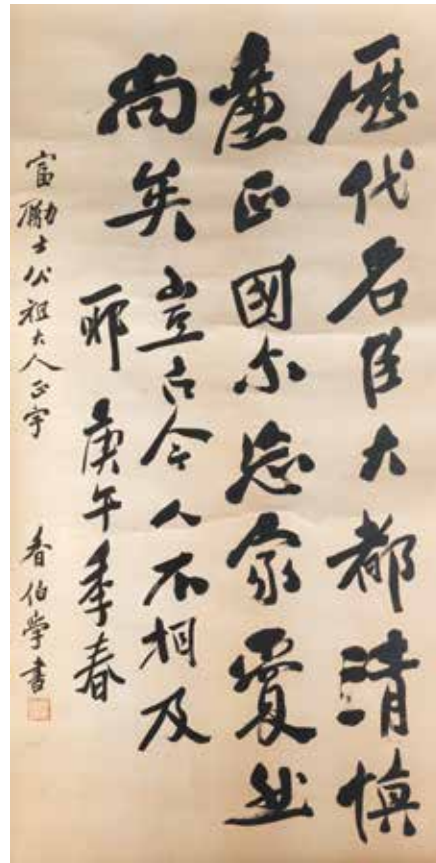 歷代名臣大都清慎
產正國尔忘家敻然
尚矣豈古今人不相及
耶庚午季春
富勵士公祖大人正字
春伯學書